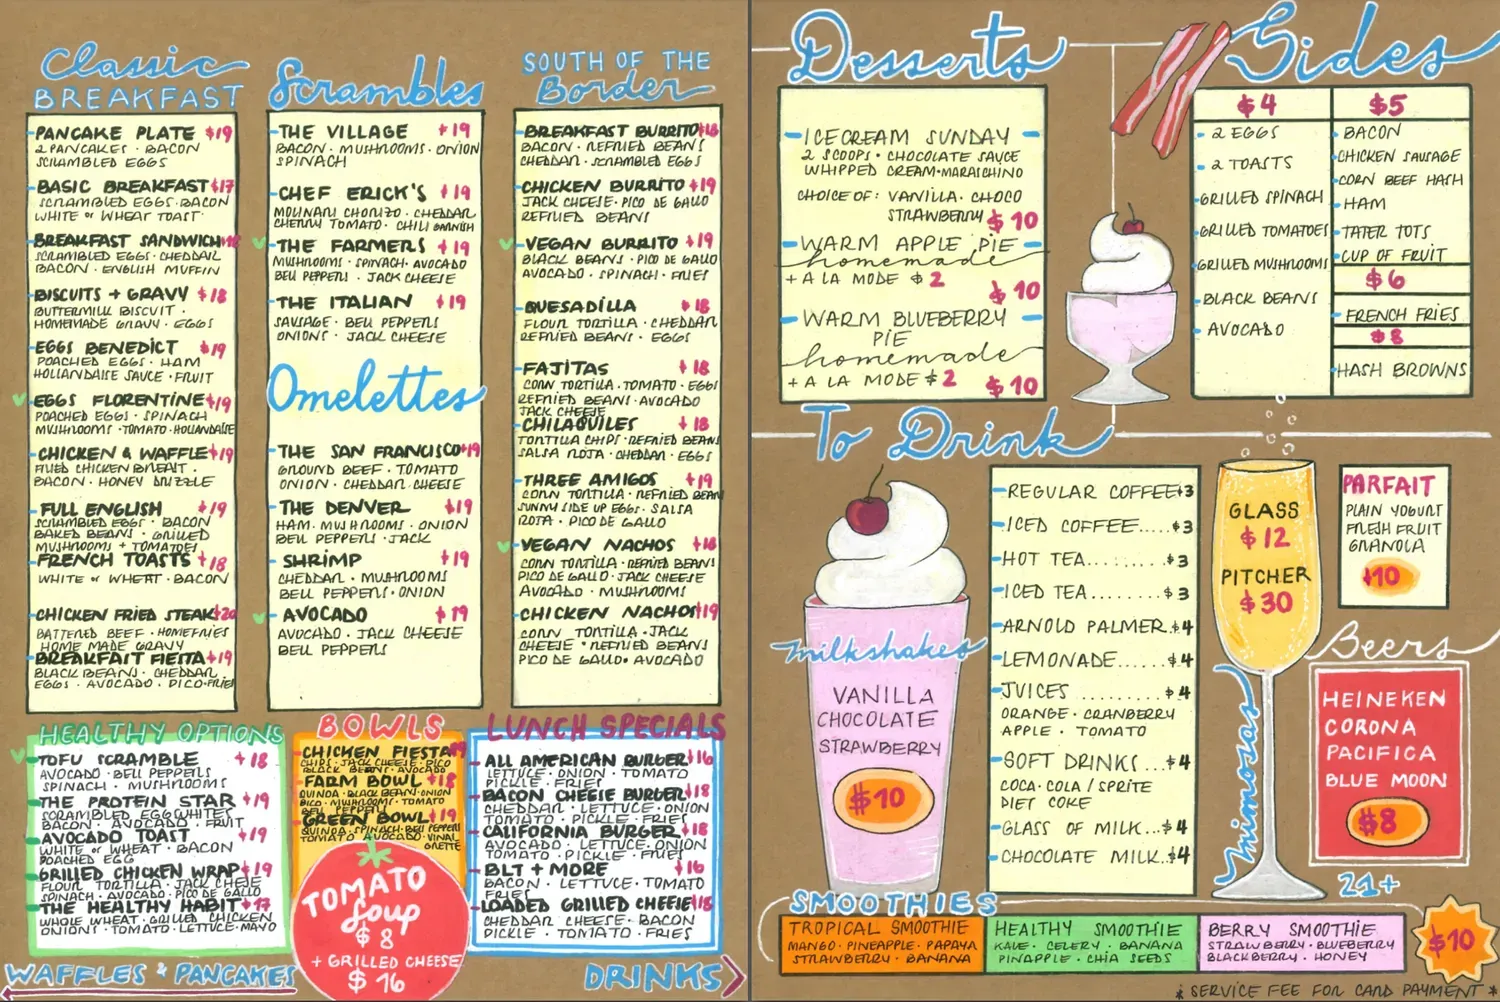 Classic
BREAKFAST
PANCAKE PLATE $19
2 PANCAKES · BACON
SCRAMBLED EGGS
BASIC BREAKFAST $17
SCRAMBLED EGGS · BACON
WHITE or WHEAT TOAST
BREAKFAST SANDWICH
SCRAMBLED EGGS · CHEDDAR
BACON · ENGLISH MUFFIN
BISCUITS + GRAVY $18
BUTTERMILK BISCUIT ·
HOMEMADE GRAVY · EGGS
EGGS BENEDICT $19
POACHED EGGS · HAM
HOLLANDAISE SAUCE · FRUIT
EGGS FLORENTINE $19
POACHED EGGS · SPINACH
MUSHROOMS · TOMATO · HOLLANDAISE
CHICKEN & WAFFLE $19
FRIED CHICKEN BREAST ·
BACON · HONEY DRIZZLE
FULL ENGLISH $19
SCRAMBLED EGGS · BACON
BAKED BEANS · GRILLED
MUSHROOMS + TOMATOES
FRENCH TOASTS $18
WHITE or WHEAT · BACON
CHICKEN FRIED STEAK $20
BATTERED BEEF · HOMEFRIES
HOME MADE GRAVY
BREAKFAST FIESTA $19
BLACK BEANS · CHEDDAR
EGGS · AVOCADO · PICO · FRIES
Scrambles
THE VILLAGE $19
BACON · MUSHROOMS · ONION
SPINACH
CHEF ERICK'S $19
MOLINARI CHORIZO · CHEDDAR
CHERRY TOMATO · CHILI GARNISH
THE FARMERS $19
MUSHROOMS · SPINACH · AVOCADO
BELL PEPPERS · JACK CHEESE
THE ITALIAN $19
SAUSAGE · BELL PEPPERS
ONIONS · JACK CHEESE
Omelettes
THE SAN FRANCISCO $19
GROUND BEEF · TOMATO
ONION · CHEDDAR CHEESE
THE DENVER $19
HAM · MUSHROOMS · ONION
BELL PEPPERS · JACK
SHRIMP $19
CHEDDAR · MUSHROOMS
BELL PEPPERS · ONION
AVOCADO $19
AVOCADO · JACK CHEESE
BELL PEPPERS
SOUTH OF THE
Border
BREAKFAST BURRITO $18
BACON · REFRIED BEANS
CHEDDAR · SCRAMBLED EGGS
CHICKEN BURRITO $19
JACK CHEESE · PICO DE GALLO
REFRIED BEANS
VEGAN BURRITO $19
BLACK BEANS · PICO DE GALLO
AVOCADO · SPINACH · FRIES
QUESADILLA $18
FLOUR TORTILLA · CHEDDAR
REFRIED BEANS · EGGS
FAJITAS $18
CORN TORTILLA · TOMATO · EGGS
REFRIED BEANS · AVOCADO
JACK CHEESE
CHILAQUILES $18
TORTILLA CHIPS · REFRIED BEANS
SALSA ROJA · CHEDDAR · EGGS
THREE AMIGOS $19
CORN TORTILLA · REFRIED BEAN
SUNNY SIDE UP EGGS · SALSA
ROJA · PICO DE GALLO
VEGAN NACHOS $18
CORN TORTILLA · REFRIED BEANS
PICO DE GALLO · JACK CHEESE
AVOCADO · MUSHROOMS
CHICKEN NACHOS $19
CORN TORTILLA · JACK
CHEESE · REFRIED BEANS
PICO DE GALLO · AVOCADO
HEALTHY OPTIONS
TOFU SCRAMBLE $18
AVOCADO · BELL PEPPERS
SPINACH · MUSHROOMS
THE PROTEIN STAR $19
SCRAMBLED EGGWHITES
BACON · AVOCADO · FRUIT
AVOCADO TOAST $19
WHITE or WHEAT · BACON
POACHED EGG
GRILLED CHICKEN WRAP $19
FLOUR TORTILLA · JACK CHEESE
SPINACH · AVOCADO · PICO DE GALLO
THE HEALTHY HABIT $17
WHOLE WHEAT · GRILLED CHICKEN
ONIONS · TOMATO · LETTUCE · MAYO
BOWLS
CHICKEN FIESTA $19
CHIPS · JACK CHEESE · PICO
BLACK BEANS · AVOCADO
FARM BOWL $18
QUINOA · BLACK BEAN · ONION
PICO · MUSHROOMS · TOMATO
BELL PEPPERS
GREEN BOWL $19
QUINOA · SPINACH · BELL PEPPERS
TOMATO · AVOCADO · VINAI
GRETTE
TOMATO
Soup
$8
+ GRILLED CHEESE
$16
LUNCH SPECIALS
ALL AMERICAN BURGER $16
LETTUCE · ONION · TOMATO
PICKLE · FRIES
BACON CHEESE BURGER $18
CHEDDAR · LETTUCE · ONION
TOMATO · PICKLE · FRIES
CALIFORNIA BURGER $18
AVOCADO · LETTUCE · ONION
TOMATO · PICKLE · FRIES
BLT + MORE $16
BACON · LETTUCE · TOMATO
FRIES
LOADED GRILLED CHEESE $18
CHEDDAR CHEESE · BACON
PICKLE · TOMATO · FRIES
WAFFLES & PANCAKES
DRINKS
Desserts
ICECREAM SUNDAY
2 SCOOPS · CHOCOLATE SAUCE
WHIPPED CREAM · MARASCHINO
CHOICE OF: VANILLA · CHOCO
STRAWBERRY $10
WARM APPLE PIE
homemade
+ A LA MODE $2
$10
WARM BLUEBERRY
PIE
homemade
+ A LA MODE $2 $10
Sides
$4
2 EGGS
2 TOASTS
GRILLED SPINACH
GRILLED TOMATOES
GRILLED MUSHROOMS
BLACK BEANS
AVOCADO
$5
BACON
CHICKEN SAUSAGE
CORN BEEF HASH
HAM
TATER TOTS
CUP OF FRUIT
$6
FRENCH FRIES
$8
HASH BROWNS
To Drink
milkshakes
VANILLA
CHOCOLATE
STRAWBERRY
$10
REGULAR COFFEE $3
ICED COFFEE.....$3
HOT TEA........$3
ICED TEA........$3
ARNOLD PALMER.$4
LEMONADE......$4
JUICES ........$4
ORANGE · CRANBERRY
APPLE · TOMATO
SOFT DRINKS ...$4
COCA·COLA / SPRITE
DIET COKE
GLASS OF MILK...$4
CHOCOLATE MILK..$4
GLASS
$12
PITCHER
$30
mimosas
PARFAIT
PLAIN YOGURT
FRESH FRUIT
GRANOLA
$10
Beers
HEINEKEN
CORONA
PACIFICA
BLUE MOON
$8
21+
SMOOTHIES
TROPICAL SMOOTHIE
MANGO · PINEAPPLE · PAPAYA
STRAWBERRY · BANANA
HEALTHY SMOOTHIE
KALE · CELERY · BANANA
PINAPPLE · CHIA SEEDS
BERRY SMOOTHIE
STRAWBERRY · BLUEBERRY
BLACKBERRY · HONEY
$10
* SERVICE FEE FOR CARD PAYMENT *